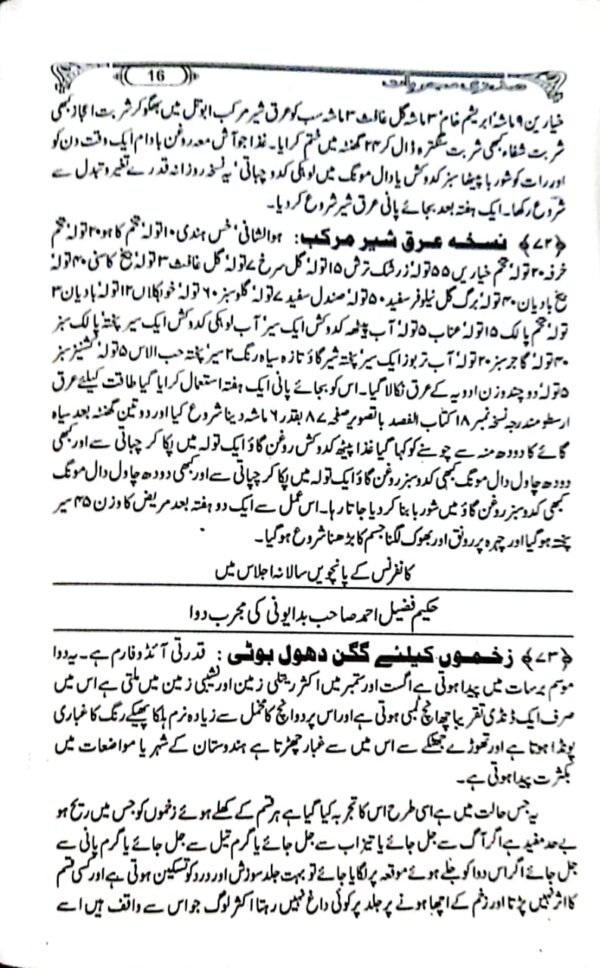 16
صدری مجربات
خیارین ۹ ماشہ' ابریشم خام' ۳ ماشہ گل غافث ۳ ماشہ سب کو عرق شیر مرکب ابوتل میں بھگو کر شربت اعجاز کبھی
شربت شفاء کبھی شربت سنگترہ ڈال کر ۲۴ گھنٹہ میں ختم کرایا۔ غذا جو آش معہ روغن بادام ایک وقت دن کو
اور رات کو شوربا پیٹھا سبز کدوکش یا دال مونگ میں لوکی کدو چپاتی' یہ نسخہ روزانہ قدرے تغیر و تبدل سے
شروع رکھا۔ ایک ہفتہ بعد بجائے پانی عرق شیر شروع کردیا۔
﴿۷۲﴾ نسخہ عرق شیر مرکب: ہوالشافی' خس ہندی ۱۰ تولہ' تخم کاہو ۲۰ تولہ' تخم
خرفہ ۲۰ تولہ' تخم خیارین ۵۵ تولہ' زرشک ترش ۱۵ تولہ' گل سرخ ۷ تولہ' گل غافث ۳ تولہ' بیخ کاسنی ۴۰ تولہ'
بیخ بادیان ۳۰ تولہ' برگ گل نیلوفر سفید ۵۰ تولہ' صندل سفید ۷ تولہ' گلو سبز ۶۰ تولہ' خوبکلاں ۱۲ تولہ' بادیان ۳
تولہ' تخم پالک ۱۵ تولہ' عناب ۵ تولہ' آب پیٹھہ کدوکش ایک سیر' آب لوکی کدوکش ایک سیر پختہ' پالک سبز
۴۰ تولہ' گاجر سبز ۲۰ تولہ' آب تربوز ایک سیر پختہ شیر گاؤ تازہ سیاہ رنگ ۲ سیر' پختہ حب الاس ۵ تولہ' کشنیز سبز
۵ تولہ' دو چند وزن ادویہ کے عرق نکالا گیا۔ اس کو بجائے پانی ایک ہفتہ استعمال کرایا گیا طاقت کیلئے عرق
ارسطو مندرجہ نسخہ نمبر ۱۸ کتاب الفصد باتصویر صفحہ ۸۷ بقدر ۶ ماشہ دینا شروع کیا اور دو تین گھنٹہ بعد سیاہ
گائے کا دودھ منہ سے چوسنے کو کہا گیا غذا پیٹھ کدوکش روغن گاؤ ایک تولہ میں پکا کر چپاتی سے اور کبھی
دودھ چاول دال مونگ کبھی کدو سبز روغن گاؤ ایک تولہ میں پکا کر چپاتی سے اور کبھی دودھ چاول دال مونگ
کبھی کدو سبز روغن گاؤ میں شوربا بنا کر دیا جاتا رہا۔ اس عمل سے ایک دو ہفتہ بعد مریض کا وزن ۴۵ سیر
پختہ ہو گیا اور چہرہ پر رونق اور بھوک لگنا جسم کا بڑھنا شروع ہو گیا۔
کانفرنس کے پانچویں سالانہ اجلاس میں
حکیم فضیل احمد صاحب بدایونی کی مجرب دوا
﴿۷۳﴾ زخموں کیلئے گگن دھول بوٹی: قدرتی آئڈوفارم ہے۔ یہ دوا
موسم برسات میں پیدا ہوتی ہے اگست اور ستمبر میں اکثر ریتلی زمین اور نشیبی زمین میں ملتی ہے اس میں
صرف ایک ڈنڈی تقریباً چھ انچ لمبی ہوتی ہے اور اس پر دو انچ کا مخمل سے زیادہ نرم ہلکا پھیکے رنگ کا غباری
پونڈا ہوتا ہے اور تھوڑے جھٹکے سے اس میں سے غبار جھڑتا ہے ہندوستان کے شہر یا مواضعات میں
بکثرت پیدا ہوتی ہے۔
یہ جس حالت میں ہے اسی طرح اس کا تجربہ کیا گیا ہے ہر قسم کے کھلے ہوئے زخموں کو جس میں ریح ہو
بے حد مفید ہے اگر آگ سے جل جائے یا تیزاب سے جل جائے یا گرم تیل سے جل جائے یا گرم پانی سے
جل جائے اگر اس دوا کو جلے ہوئے موقعہ پر لگایا جائے تو بہت جلد سوزش اور درد کو تسکین ہوتی ہے اور کسی قسم
کا اثر نہیں پڑتا اور زخم کے اچھا ہونے پر جلد پر کوئی داغ نہیں رہتا اکثر لوگ جو اس سے واقف ہیں اسے